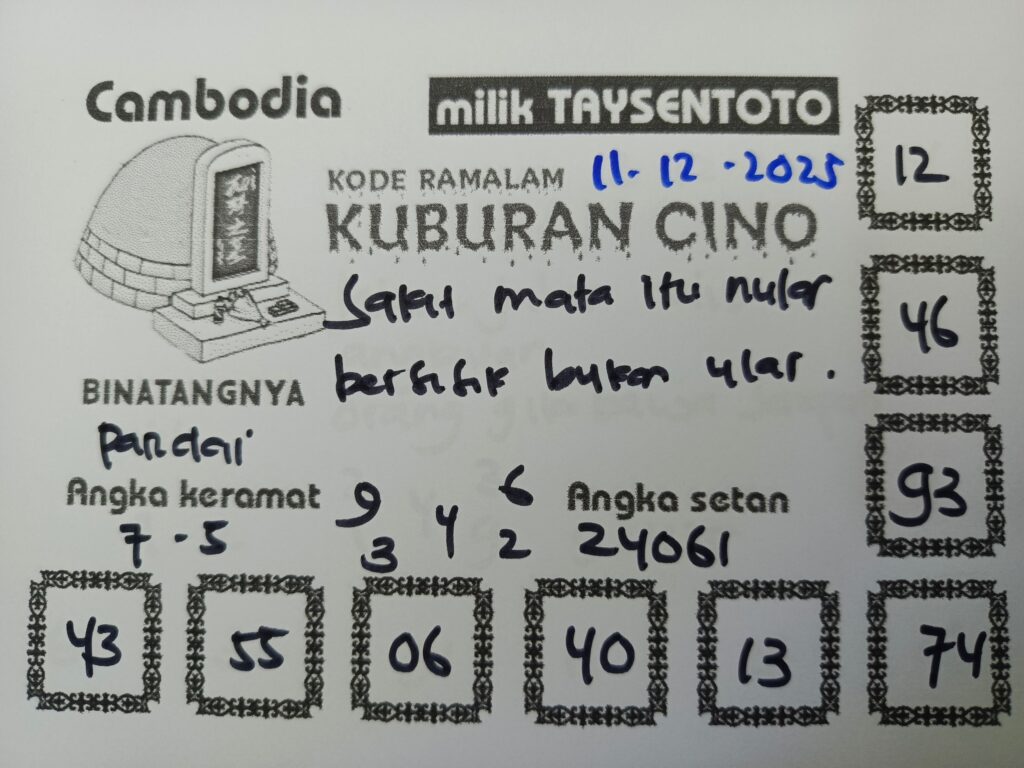 Cambodia
milik TAYSENTOTO
KODE RAMALAM 11.12.2025
KUBURAN CINO
Sakit mata itu nular
bersisik bukan ular.
BINATANGNYA
pandai
Angka keramat
7.5
9 6
4
3 2
Angka setan
24061
12
46
93
43 55 06 40 13 74